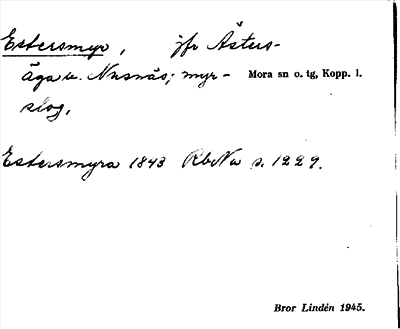 Estersmyr, jfr Åsters-
äga u. Nusnäs; myr- Mora sn o. tg, Kopp. l.
slog.
Estersmyra 1843 RbNa s. 1229.
Bror Lindén 1945.